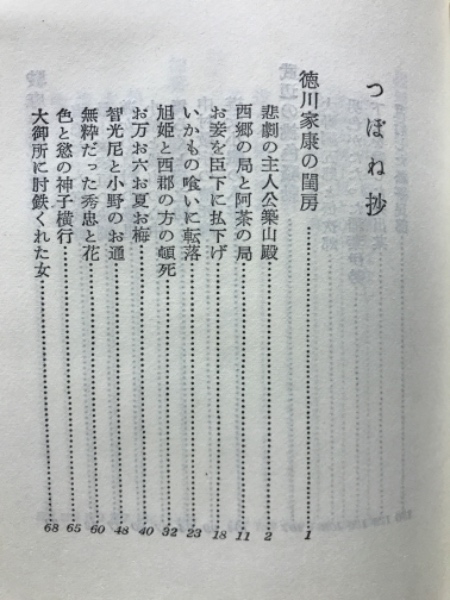 つぼね抄
徳川家康の閨房 1
悲劇の主人公築山殿 2
西郷の局と阿茶の局 11
お妾を臣下に払下げ 18
いかもの喰いに転落 23
旭姫と西郡の方の頓死 32
お万お六お夏お梅 40
智光尼と小野のお通 48
無粋だった秀忠と花 60
色と慾の神子横行 65
大御所に肘鉄くれた女 68